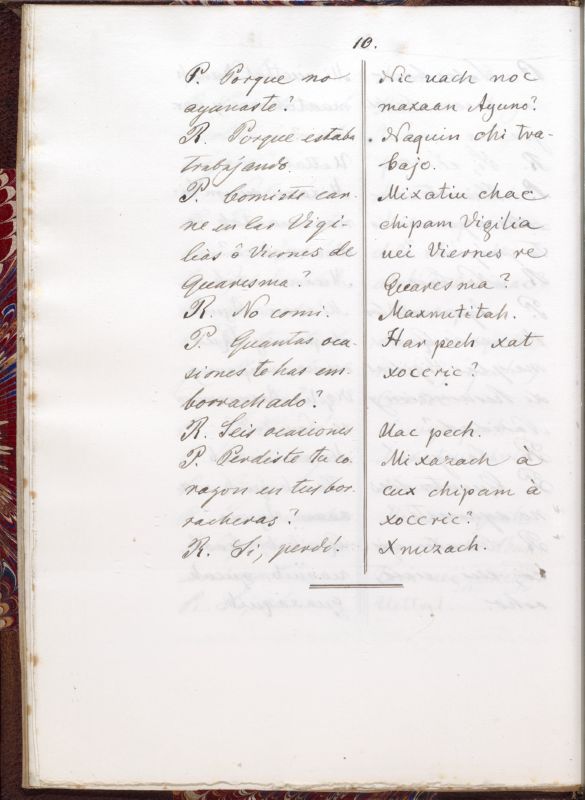 10.
P. Porque no
ayunaste?
R. Porque estaba
trabajando.
P. Comiste car-
ne en las Vigi-
lias ô Viernes de
Quaresma?
R. No comi.
P. Quantas oca-
siones te has em-
borrachado?
R. Seis ocaciones
P. Perdiste tu co-
razon en tus bor-
racheras?
R. Si, perdí.
Nic uach no c
maxaan Ayuno?
Naquin chi tra-
bajo.
Mixatiu chac
chipam Vigilia
uei Viernes re
Quaresma?
Maxmutitah.
Har pech xat
xoceric?
Uac pech.
Mixazach à
cux chipam à
xoceric?
Xnuzach.